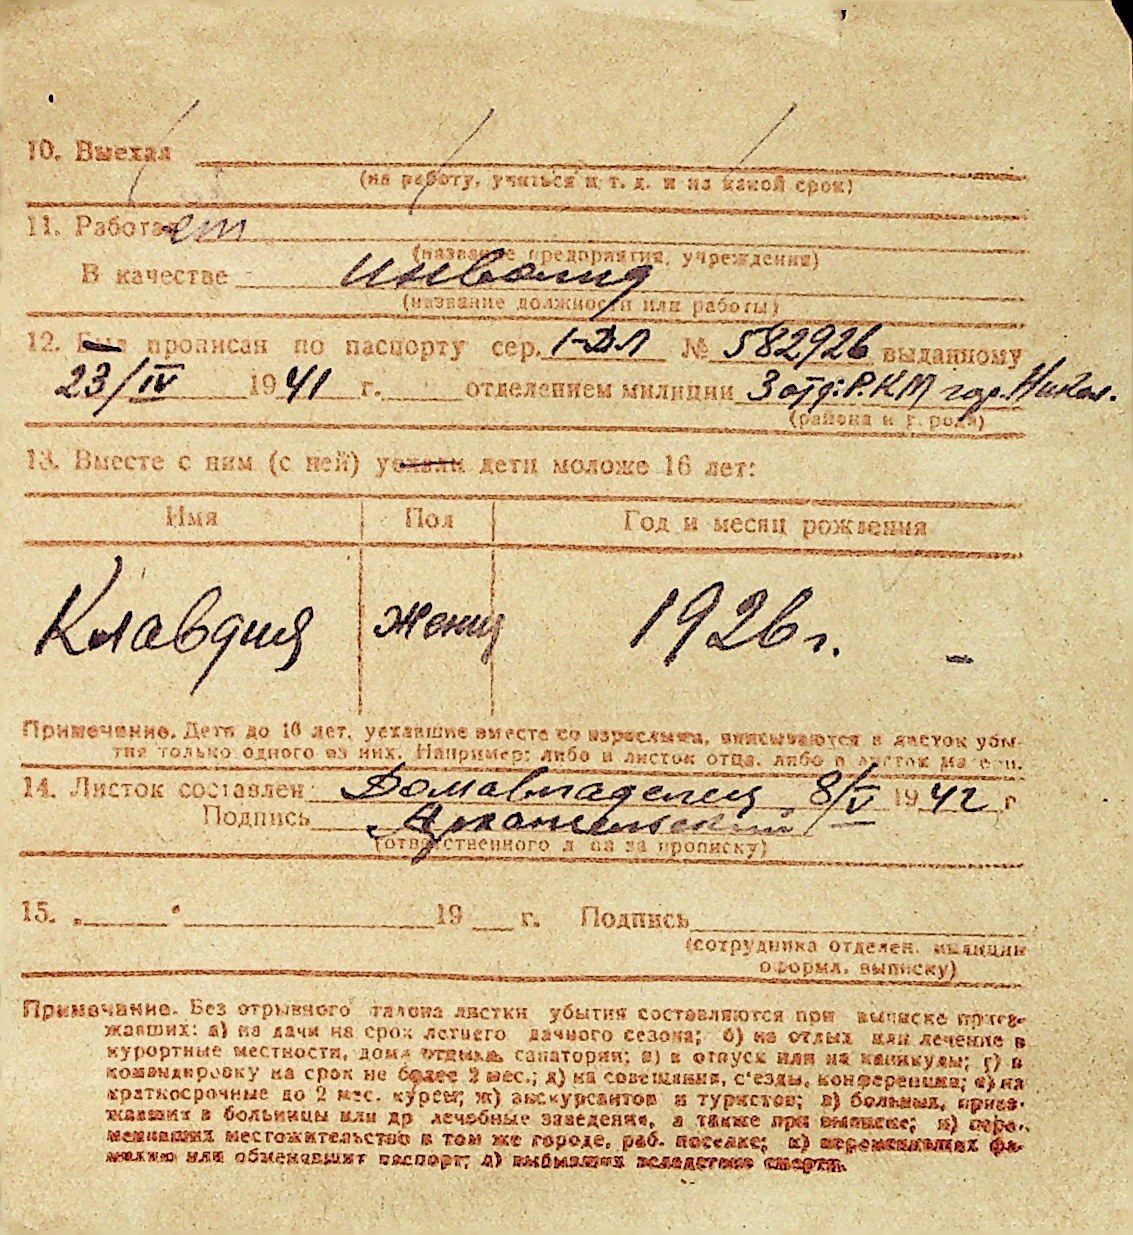 10. Выехал
(на работу, учиться и т. д. и на какой срок)
11. Работает
(название предприятия, учреждения)
В качестве инвалид
(название должности или работы)
12. Был прописан по паспорту сер. 1-ДЛ № 582926 выданному
23/IV 1941 г. отделением милиции 3 отд. Р.К.М гор. Никол.
(района и города)
13. Вместе с ним (с ней) уехали дети моложе 16 лет:
Имя Пол Год и месяц рождения
Клавдия женщ 1926 г. –
Примечание. Дети до 16 лет, уехавшие вместе со взрослыми, вписываются в листок убы-
тия только одного из них. Например: либо в листок отца, либо в листок матери.
14. Листок составлен: Домовладелец 8/V 1942 г
Подпись Архангельский
(ответственного лица за прописку)
15. „ “ 19 г. Подпись
(сотрудника отделен. милиции
оформл. выписку)
Примечание. Без отрывного талона листки убытия составляются при выписке приез-
жавших: а) на дачи на срок летнего дачного сезона; б) на отдых или лечение в
курортные местности, дома отдыха, санатории; в) в отпуск или на каникулы; г) в
командировку на срок не более 2 мес.; д) на совещания, с'езды, конференции; е) на
краткосрочные до 2 мес. курсы; ж) экскурсантов и туристов; з) больных, приез-
жавших в больницы или др лечебные заведения, а также при выписке; и) пере-
менивших местожительство в том же городе, раб. поселке; к) переменивших фа-
милию или обменявшит паспорт; л) выбывших вследствие смерти.